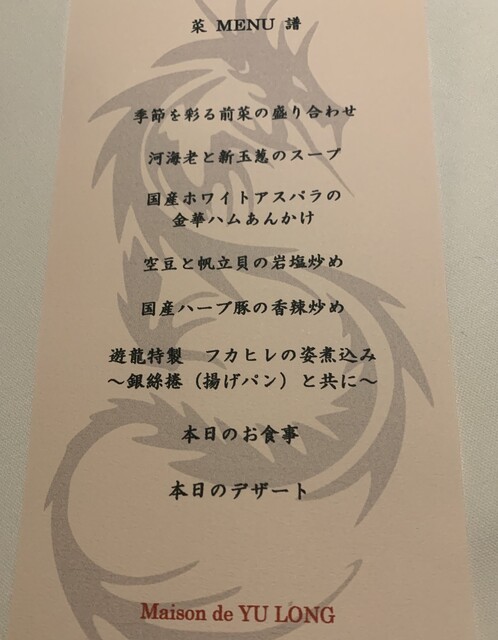 菜 MENU 譜
季節を彩る前菜の盛り合わせ
河海老と新玉葱のスープ
国産ホワイトアスパラの
金華ハムあんかけ
空豆と帆立貝の岩塩炒め
国産ハーブ豚の香辣炒め
遊龍特製 フカヒレの姿煮込み
～銀絲捲（揚げパン）と共に～
本日のお食事
本日のデザート
Maison de YU LONG